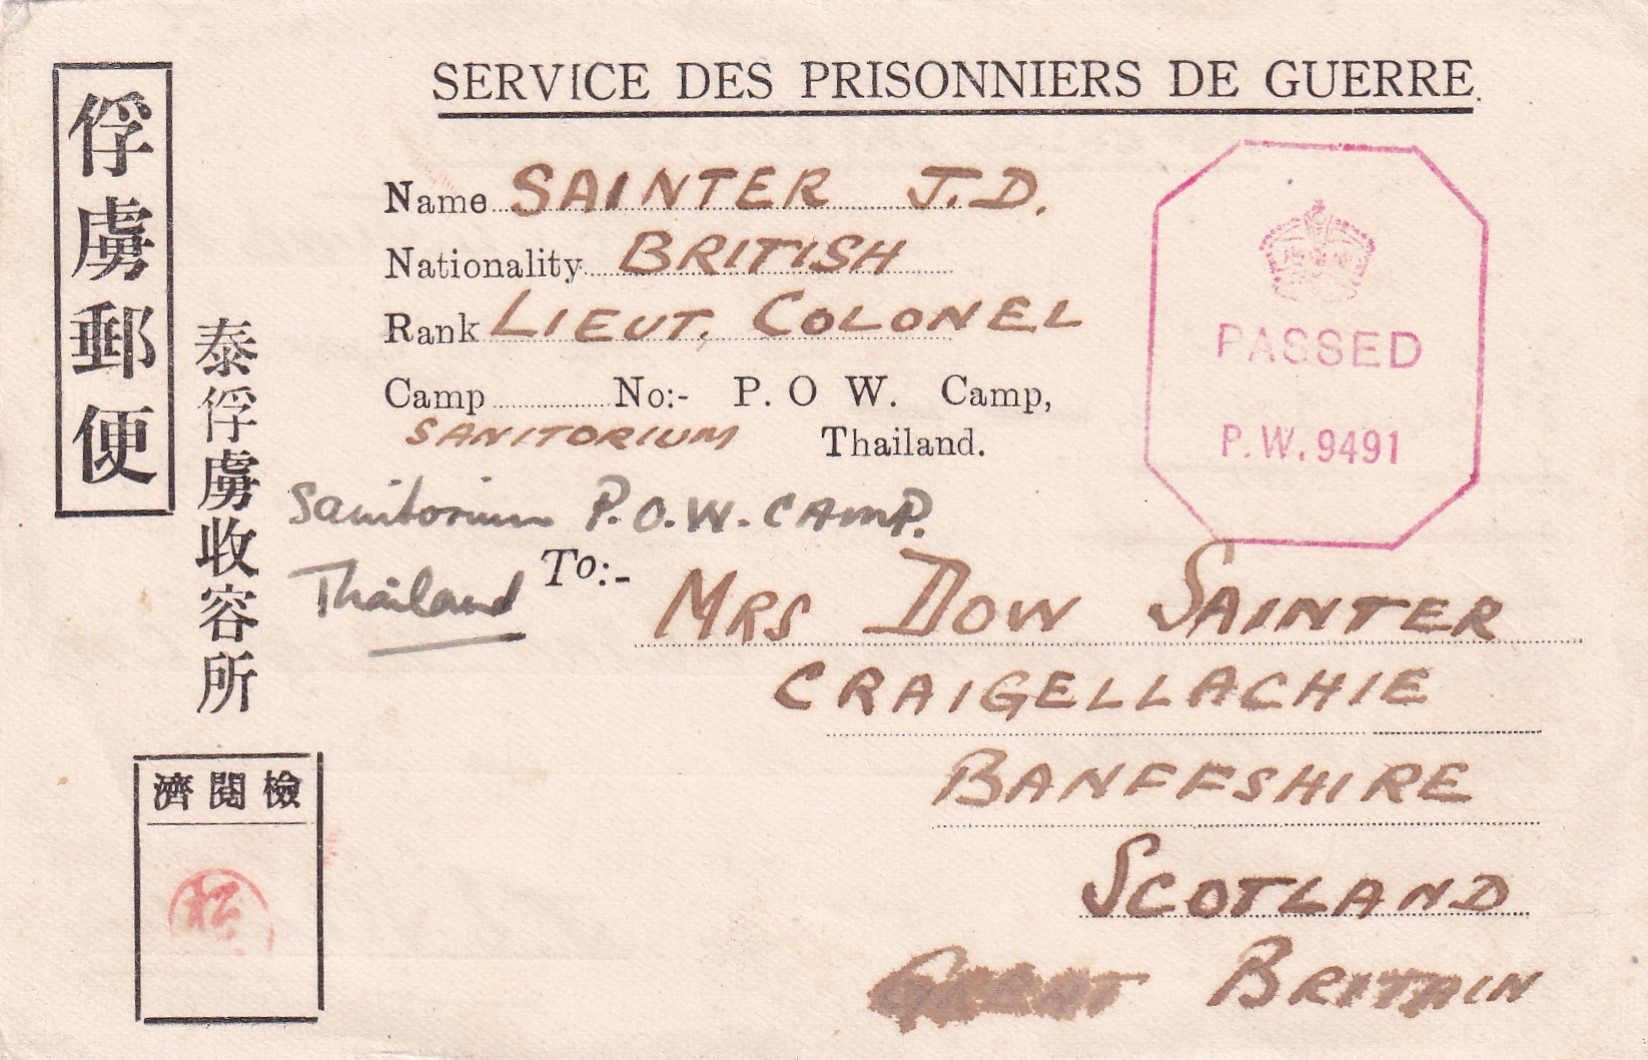 俘虜郵便
泰俘虜收容所
SERVICE DES PRISONNIERS DE GUERRE
Name SAINTER J.D.
Nationality BRITISH
Rank LIEUT. COLONEL
Camp No:- P. O W. Camp,
SANITORIUM Thailand.
Sanitorium P.O.W. CAMP.
Thailand
To:- MRS DOW SAINTER
CRAIGELLACHIE
BANFFSHIRE
SCOTLAND
GREAT BRITAIN
PASSED
P.W. 9491
濟閱檢
松